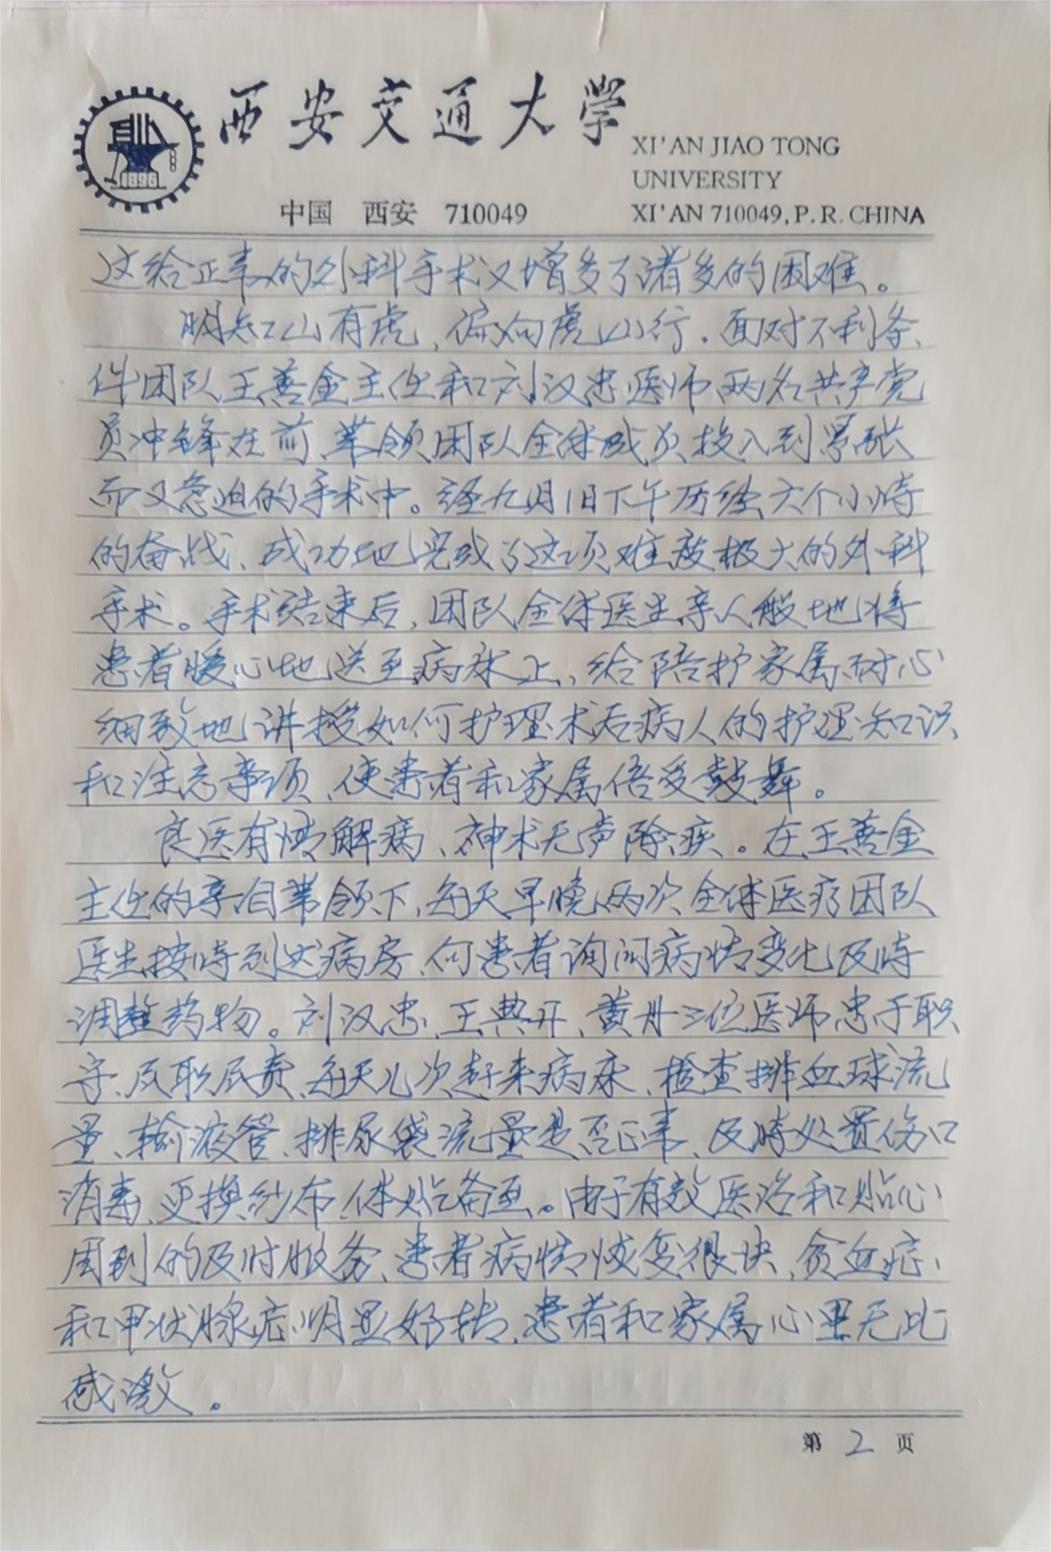 西安交通大学
XI'AN JIAO TONG
UNIVERSITY
中国 西安 710049
XI'AN 710049, P.R. CHINA
1896
这给正常的外科手术又增多了诸多的困难。
明知山有虎、偏向虎山行. 面对不利条
件团队王善金主任和刘汉忠医师两名共产党
员冲锋在前、带领团队全体成员投入到紧张
而又急迫的手术中。经九月1日下午历经六个小时
的奋战、成功地完成了这项难度极大的外科
手术。手术结束后,团队全体医生亲人般地将
患者暖心地送至病床上、给陪护家属耐心
细致地讲授如何护理术后病人的护理知识
和注意事项、使患者和家属倍受鼓舞。
良医有情解病、神术无声除疾。在王善金
主任的亲自带领下,每天早晚两次全体医疗团队
医生按时到达病房、向患者询问病情变化及时
调整药物。刘汉忠、王典开、黄丹三位医师忠于职
守、尽职尽责、每天几次赶来病床、检查排血球流
量、输液管、排尿袋流量是否正常、及时处置伤口
消毒、更换纱布、体贴备至。由于有效医治和贴心
周到的及时服务、患者病情恢复很快、贫血症
和甲状腺症明显好转、患者和家属心里无比
感激。
第 2 页